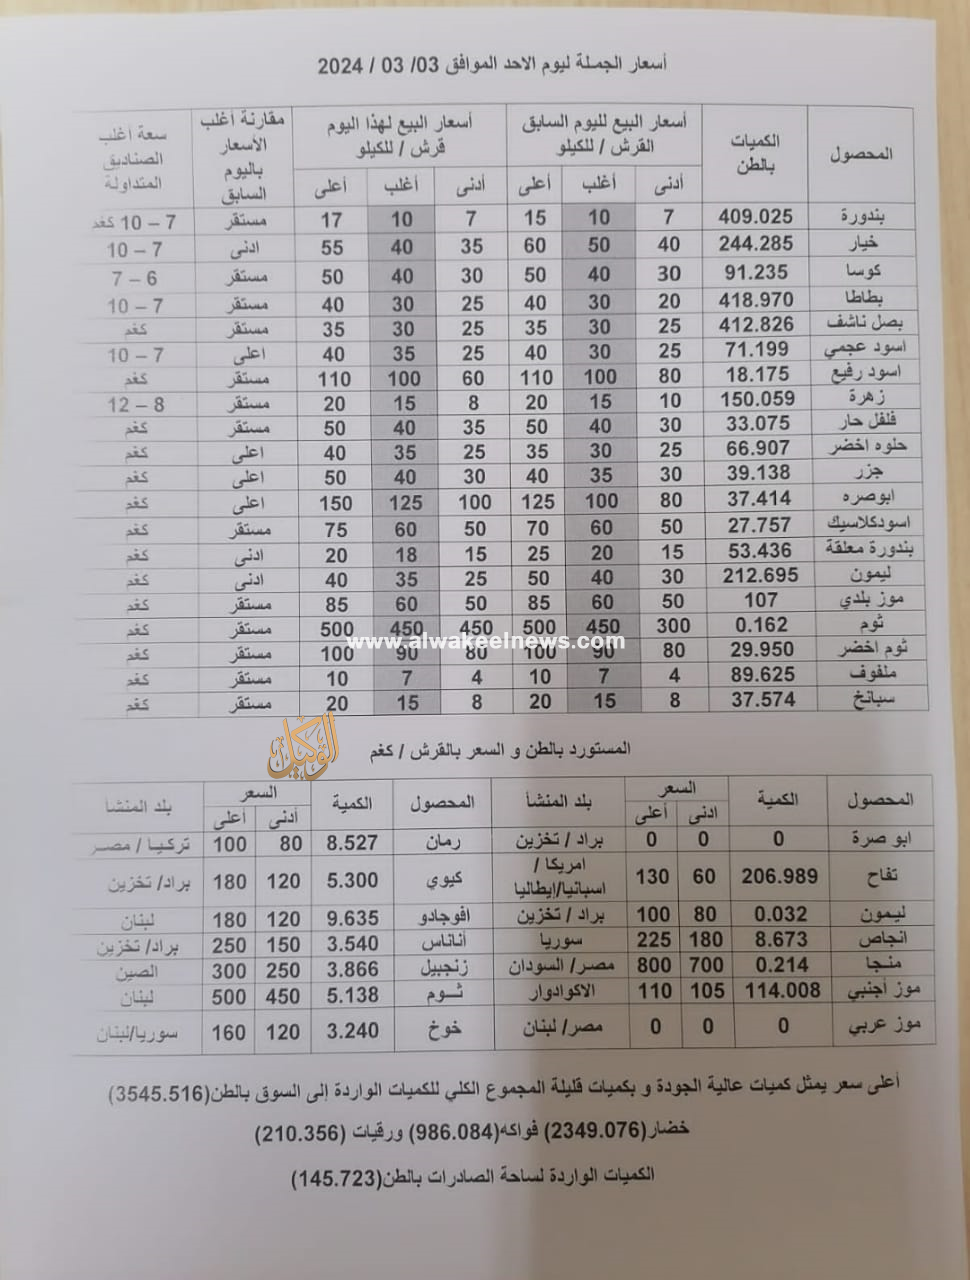 أسعار الجملة ليوم الاحد الموافق 03/ 03 / 2024
المحصول الكميات بالطن أسعار البيع لليوم السابق القرش / للكيلو أسعار البيع لهذا اليوم قرش / للكيلو مقارنة أغلب الأسعار باليوم السابق سعة أغلب الصناديق المتداولة
أدنى أغلب أعلى أدنى أغلب أعلى
بندورة 409.025 7 10 15 7 10 17 مستقر 7 – 10 كغم
خيار 244.285 40 50 60 35 40 55 ادنى 7 – 10
كوسا 91.235 30 40 50 30 40 50 مستقر 6 – 7
بطاطا 418.970 20 30 40 25 30 40 مستقر 7 – 10
بصل ناشف 412.826 25 30 35 25 30 35 مستقر كغم
اسود عجمي 71.199 25 30 40 25 35 40 اعلى 7 – 10
اسود رفيع 18.175 80 100 110 60 100 110 مستقر كغم
زهرة 150.059 10 15 20 8 15 20 مستقر 8 – 12
فلفل حار 33.075 30 40 50 35 40 50 مستقر كغم
حلوه اخضر 66.907 25 30 35 25 35 40 اعلى كغم
جزر 39.138 30 35 40 30 40 50 اعلى كغم
ابوصره 37.414 80 100 125 100 125 150 اعلى كغم
اسودكلاسيك 27.757 50 60 70 50 60 75 مستقر كغم
بندورة معلقة 53.436 15 20 25 15 18 20 ادنى كغم
ليمون 212.695 30 40 50 25 35 40 ادنى كغم
موز بلدي 107 50 60 85 50 60 85 مستقر كغم
ثوم 0.162 300 450 500 450 450 500 مستقر كغم
www.alwakeelnews.com
ثوم اخضر 29.950 80 90 100 80 90 100 مستقر كغم
ملفوف 89.625 4 7 10 4 7 10 مستقر كغم
سبانخ 37.574 8 15 20 8 15 20 مستقر كغم
الوكيل
المستورد بالطن و السعر بالقرش / كغم
المحصول الكمية السعر بلد المنشأ المحصول الكمية السعر بلد المنشأ
ادنى أعلى أدنى أعلى
ابو صرة 0 0 0 براد / تخزين رمان 8.527 80 100 تركيا / مصر
تفاح 206.989 60 130 امريكا / اسبانيا/إيطاليا كيوي 5.300 120 180 براد/ تخزين
ليمون 0.032 80 100 براد / تخزين افوجادو 9.635 120 180 لبنان
انجاص 8.673 180 225 سوريا أناناس 3.540 150 250 براد/ تخزين
منجا 0.214 700 800 مصر/ السودان زنجبيل 3.866 250 300 الصين
موز أجنبي 114.008 105 110 الاكوادوار ثوم 5.138 450 500 لبنان
موز عربي 0 0 0 مصر/ لبنان خوخ 3.240 120 160 سوريا/لبنان
أعلى سعر يمثل كميات عالية الجودة و بكميات قليلة المجموع الكلي للكميات الواردة إلى السوق بالطن(3545.516)
خضار(2349.076) فواكه(986.084) ورقيات (210.356)
الكميات الواردة لساحة الصادرات بالطن(145.723)